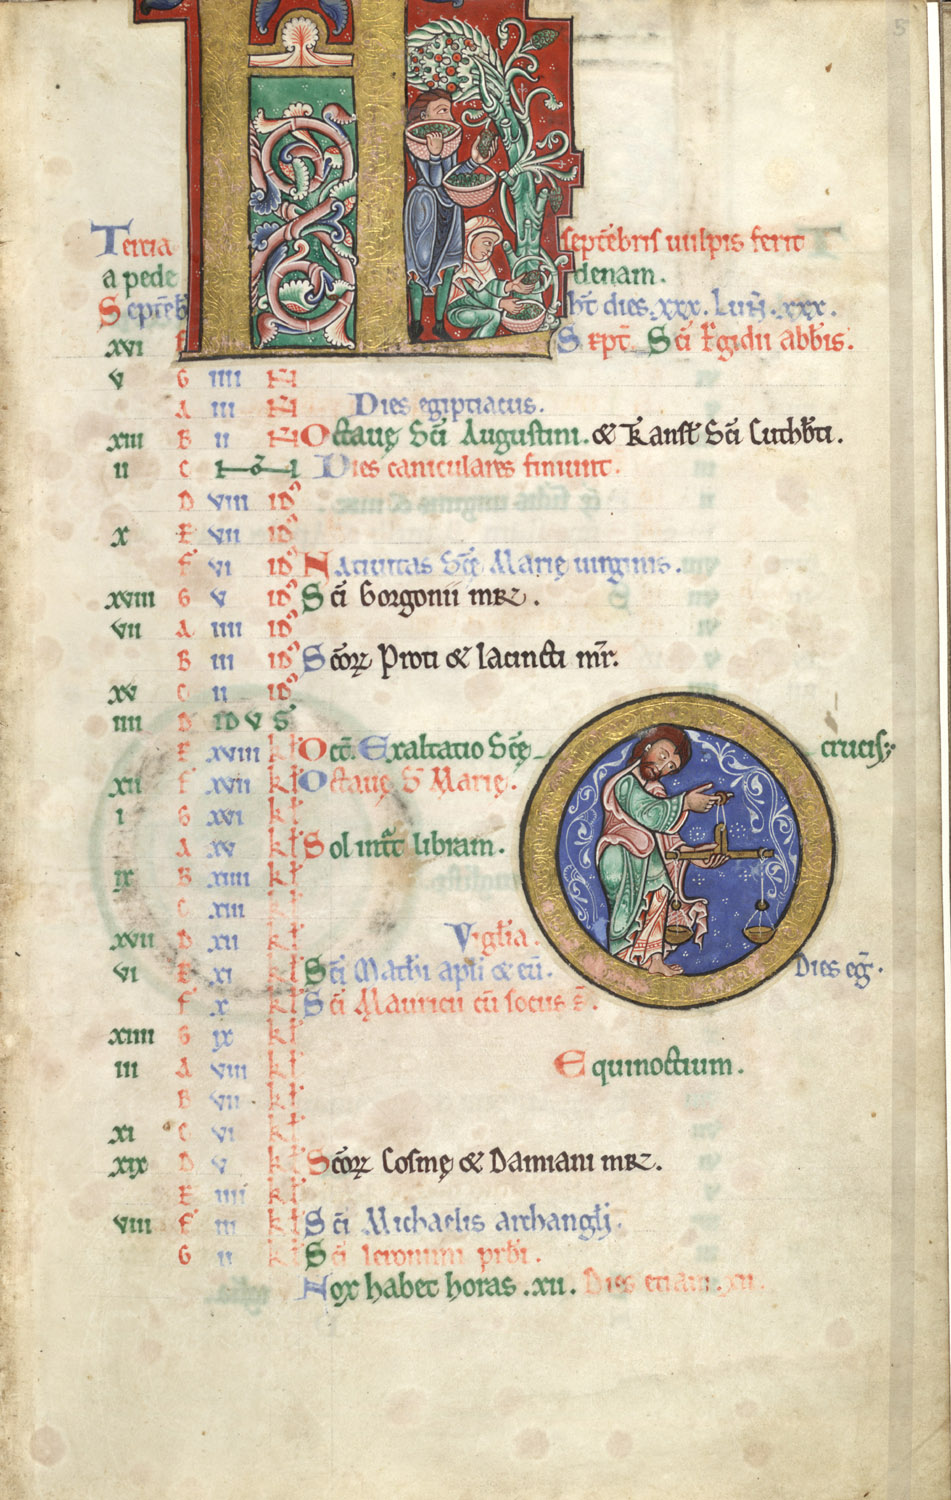 5
Tercia septēbris uulpis ferit
a pede denam.
Septēb ht dies .xxx. Luñ .xxx.
xvi f Sept. Sc̄i Egidii abbis.
v G iiii N
A iii N Dies egiptiacus.
xiii B ii N Octauę Sc̄i Augustini. & t̄ansł Sc̄i Cuthb̄ti.
ii C Dies caniculares finiunt.
D viii id᷒
x E vii id᷒
F vi id᷒ Natiuitas Sc̄ę Marię uirginis.
xviii G v id᷒ Sc̄i Gorgonii mr̄.
vii A iiii id᷒
B iii id᷒ Sc̄oꝝ Proti & Iacincti mr̄.
xv C ii id᷒
iiii D IDVS
E xviii kł Oct̄. Exaltatio Sc̄ę crucis;
xii F xvii kł Octauę S̄ Marię.
i G xvi kł
A xv kł Sol int̄t libram.
ix B xiiii kł
C xiii kł
xvii D xii kł Vigłia.
vi E xi kł Sc̄i Mathi apłi & eū. Dies eḡ.
F x kł Sc̄i Mauricii cū sociis s̄.
xiiii G ix kł
iii A viii kł Equinoctium.
B vii kł
xi C vi kł
xix D v kł Sc̄oꝝ Cosmę & Damiani mr̄.
E iiii kł
viii F iii kł Sc̄i Michaelis archangłi.
G ii kł Sc̄i Ieronimi prb̄i.
Nox habet horas .xii. Dies etiam .xii.